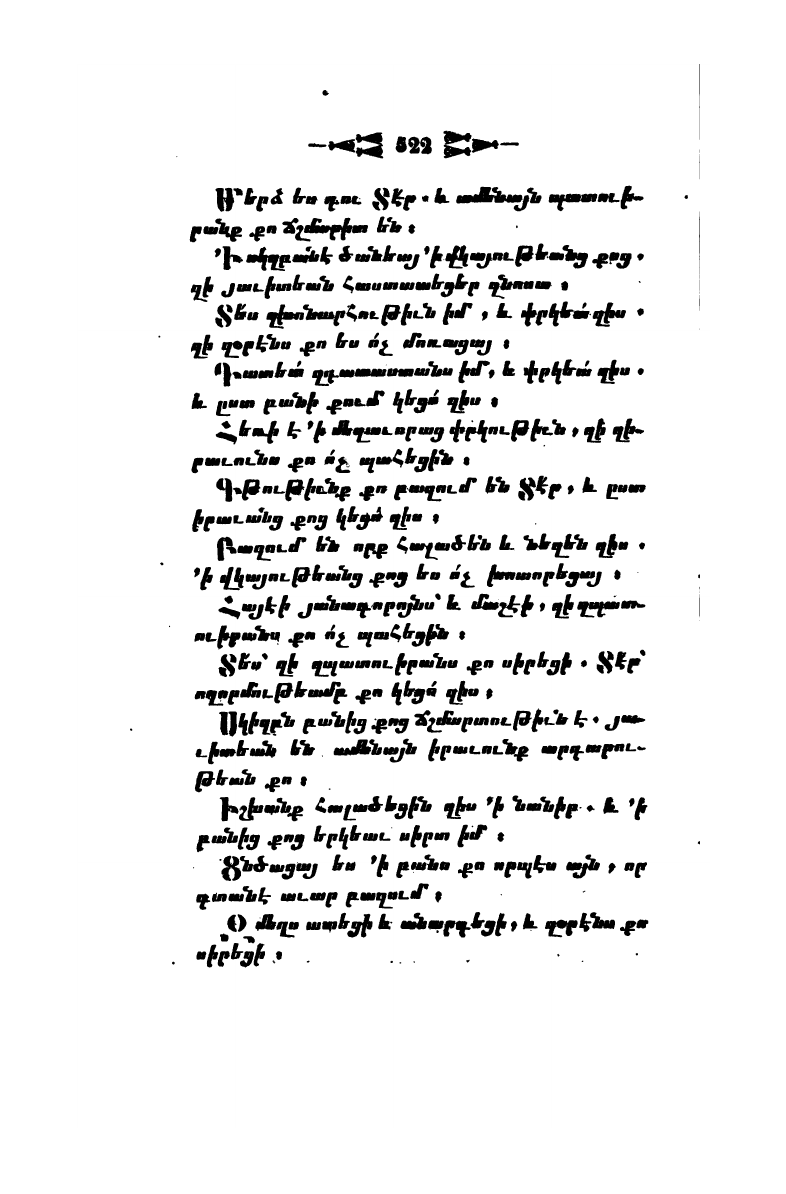 522
Մերձ ես դու Տէր. և ամենայն պատուի-
րանք քո ճշմարիտ են։
՚Ի սկզբանէ ծանեայ ՚ի վկայութեանց քոց.
զի յաւիտեան հաստատեցեր զնոսա։
Տես զխոնարհութիւն իմ, և փրկեա՛ զիս.
զի զօրէնս քո ես ո՛չ մոռացայ։
Դատեա՛ զդատաստանս իմ, և փրկեա՛ զիս.
և ըստ բանի քում կեցո՛ զիս։
Հեռի է ՚ի մեղաւորաց փրկութիւն, զի զի-
րաւունս քո ո՛չ պահեցին։
Գթութիւնք քո բազում են Տէր, և ըստ
իրաւանց քոց կեցո՛ զիս։
Բազում են որք հալածեն և նեղեն զիս.
՚ի վկայութեանց քոց ես ո՛չ խոտորեցայ։
Հայէի յանազորոյնս՝ և մաշէի, զի զպատ-
ուիրանս քո ո՛չ պահեցին։
Տես՝ զի զպատուիրանս քո սիրեցի. Տէր՝
ողորմութեամբ քո կեցո՛ զիս։
Սկիզբն բանից քոց ճշմարտութիւն է. յա-
ւիտեան են ամենայն իրաւունք արդարու-
թեան քո։
Իշխանք հալածեցին զիս ՚ի նանիր. և ՚ի
բանից քոց երկեաւ սիրտ իմ։
Ցնծացայ ես ՚ի բանս քո որպէս այն, որ
գտանէ աւար բազում։
Զմեղս ատեցի և անարգեցի, և զօրէնս քո
սիրեցի։